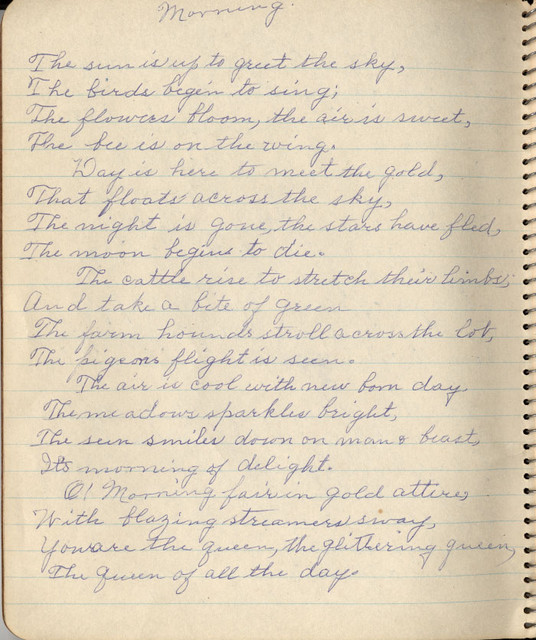 Morning.
The sun is up to greet the sky,
The birds begin to sing;
The flowers bloom, the air is sweet,
The bee is on the wing.
Day is here to meet the gold,
That floats across the sky,
The night is gone, the stars have fled,
The moon begins to die.
The cattle rise to stretch their limbs;
And take a bite of green
The farm hounds stroll across the lot,
The pigeons flight is seen.
The air is cool with new born day
The meadows sparkles bright,
The sun smiles down on man & beast,
Its morning of delight.
O! Morning fair in gold attere,
With blazing streamers sway,
You are the queen, the glittering queen,
The queen of all the day.